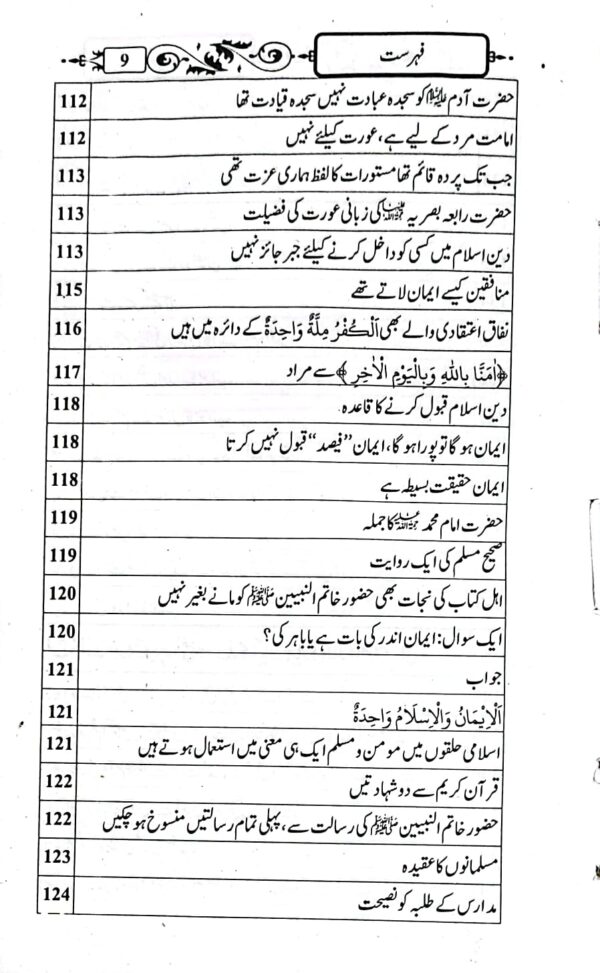 فہرست
9
حضرت آدم علیہ السلام کو سجدہ عبادت نہیں سجدہ قیادت تھا 112
امامت مرد کے لیے ہے، عورت کیلئے نہیں 112
جب تک پردہ قائم تھا مستورات کا لفظ ہماری عزت تھی 113
حضرت رابعہ بصریہ رحمۃ اللہ علیہا کی زبانی عورت کی فضیلت 113
دین اسلام میں کسی کو داخل کرنے کیلئے جبر جائز نہیں 113
منافقین کیسے ایمان لاتے تھے 115
نفاق اعتقادی والے بھی اَلْکُفْرُ مِلَّةٌ وَاحِدَةٌ کے دائرہ میں ہیں 116
﴿اٰمَنَّا بِاللّٰهِ وَبِالْیَوْمِ الْاٰخِرِ﴾ سے مراد 117
دین اسلام قبول کرنے کا قاعدہ 118
ایمان ہوگا تو پورا ہوگا، ایمان ”فیصد“ قبول نہیں کرتا 118
ایمان حقیقت بسیطہ ہے 118
حضرت امام محمد رحمۃ اللہ علیہ کا جملہ 119
صحیح مسلم کی ایک روایت 119
اہل کتاب کی نجات بھی حضور خاتم النبیین ﷺ کو مانے بغیر نہیں 120
ایک سوال: ایمان اندر کی بات ہے یا باہر کی؟ 120
جواب 121
اَلْاِیْمَانُ وَالْاِسْلَامُ وَاحِدَةٌ 121
اسلامی حلقوں میں مومن و مسلم ایک ہی معنی میں استعمال ہوتے ہیں 121
قرآن کریم سے دو شہادتیں 122
حضور خاتم النبیین ﷺ کی رسالت سے، پہلی تمام رسالتیں منسوخ ہوچکیں 122
مسلمانوں کا عقیدہ 123
مدارس کے طلبہ کو نصیحت 124